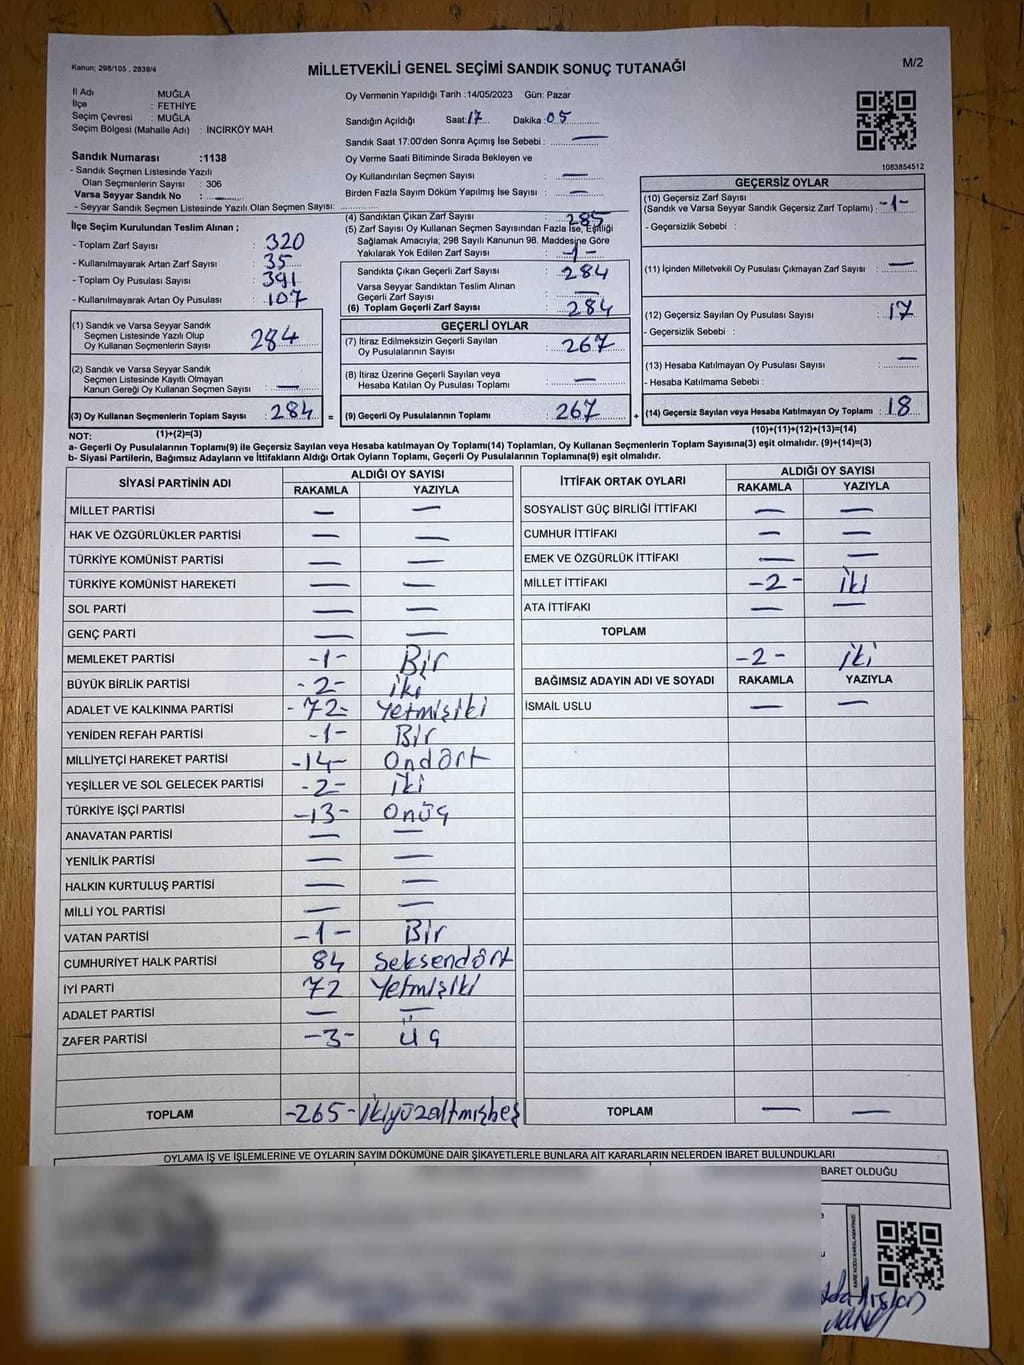 Kanun; 298/105 , 2839/4
MİLLETVEKİLİ GENEL SEÇİMİ SANDIK SONUÇ TUTANAĞI
M/2
İl Adı : MUĞLA
İlçe : FETHİYE
Seçim Çevresi : MUĞLA
Seçim Bölgesi (Mahalle Adı) : İNCİRKÖY MAH.
Sandık Numarası :1138
- Sandık Seçmen Listesinde Yazılı
Olan Seçmenlerin Sayısı : 306
Varsa Seyyar Sandık No : —
- Seyyar Sandık Seçmen Listesinde Yazılı Olan Seçmen Sayısı:
Oy Vermenin Yapıldığı Tarih :14/05/2023 Gün: Pazar
Sandığın Açıldığı Saat:17 Dakika:05
Sandık Saat 17:00'den Sonra Açımış İse Sebebi : —
Oy Verme Saati Bitiminde Sırada Bekleyen ve
Oy Kullandırılan Seçmen Sayısı : —
Birden Fazla Sayım Döküm Yapılmış İse Sayısı : —
1083854512
İlçe Seçim Kurulundan Teslim Alınan ;
- Toplam Zarf Sayısı : 320
- Kullanılmayarak Artan Zarf Sayısı : 35
- Toplam Oy Pusulası Sayısı : 391
- Kullanılmayarak Artan Oy Pusulası : 107
(1) Sandık ve Varsa Seyyar Sandık
Seçmen Listesinde Yazılı Olup
Oy Kullanan Seçmenlerin Sayısı : 284
(2) Sandık ve Varsa Seyyar Sandık
Seçmen Listesinde Kayıtlı Olmayan
Kanun Gereği Oy Kullanan Seçmen Sayısı : —
(3) Oy Kullanan Seçmenlerin Toplam Sayısı : 284 =
(4) Sandıktan Çıkan Zarf Sayısı : 285
(5) Zarf Sayısı Oy Kullanan Seçmen Sayısından Fazla İse, Eşitliği
Sağlamak Amacıyla; 298 Sayılı Kanunun 98. Maddesine Göre
Yakılarak Yok Edilen Zarf Sayısı : -1-
Sandıkta Çıkan Geçerli Zarf Sayısı : 284
Varsa Seyyar Sandıktan Teslim Alınan
Geçerli Zarf Sayısı : —
(6) Toplam Geçerli Zarf Sayısı : 284
GEÇERLİ OYLAR
(7) İtiraz Edilmeksizin Geçerli Sayılan
Oy Pusulalarının Sayısı : 267
(8) İtiraz Üzerine Geçerli Sayılan veya
Hesaba Katılan Oy Pusulası Toplamı : —
(9) Geçerli Oy Pusulalarının Toplamı : 267 +
GEÇERSİZ OYLAR
(10) Geçersiz Zarf Sayısı
(Sandık ve Varsa Seyyar Sandık Geçersiz Zarf Toplamı) : -1-
- Geçersizlik Sebebi :
(11) İçinden Milletvekili Oy Pusulası Çıkmayan Zarf Sayısı : —
(12) Geçersiz Sayılan Oy Pusulası Sayısı : 17
- Geçersizlik Sebebi :
(13) Hesaba Katılmayan Oy Pusulası Sayısı : —
- Hesaba Katılmama Sebebi :
(14) Geçersiz Sayılan veya Hesaba Katılmayan Oy Toplamı : 18
NOT: (1)+(2)=(3)
(10)+(11)+(12)+(13)=(14)
a- Geçerli Oy Pusulalarının Toplamı(9) ile Geçersiz Sayılan veya Hesaba katılmayan Oy Toplamı(14) Toplamları, Oy Kullanan Seçmenlerin Toplam Sayısına(3) eşit olmalıdır. (9)+(14)=(3)
b- Siyasi Partilerin, Bağımsız Adayların ve İttifakların Aldığı Ortak Oyların Toplamı, Geçerli Oy Pusulalarının Toplamına(9) eşit olmalıdır.
SİYASİ PARTİNİN ADI ALDIĞI OY SAYISI
RAKAMLA YAZIYLA
MİLLET PARTİSİ — —
HAK VE ÖZGÜRLÜKLER PARTİSİ — —
TÜRKİYE KOMÜNİST PARTİSİ — —
TÜRKİYE KOMÜNİST HAREKETİ — —
SOL PARTİ — —
GENÇ PARTİ — —
MEMLEKET PARTİSİ -1- Bir
BÜYÜK BİRLİK PARTİSİ -2- iki
ADALET VE KALKINMA PARTİSİ -72- Yetmişiki
YENİDEN REFAH PARTİSİ -1- Bir
MİLLİYETÇİ HAREKET PARTİSİ -14- Ondört
YEŞİLLER VE SOL GELECEK PARTİSİ -2- İki
TÜRKİYE İŞÇİ PARTİSİ -13- Onüç
ANAVATAN PARTİSİ — —
YENİLİK PARTİSİ — —
HALKIN KURTULUŞ PARTİSİ — —
MİLLİ YOL PARTİSİ — —
VATAN PARTİSİ -1- Bir
CUMHURİYET HALK PARTİSİ 84 Seksendört
İYİ PARTİ 72 Yetmişiki
ADALET PARTİSİ — —
ZAFER PARTİSİ -3- Üç
TOPLAM -265- İkiyüzaltmışbeş
İTTİFAK ORTAK OYLARI ALDIĞI OY SAYISI
RAKAMLA YAZIYLA
SOSYALİST GÜÇ BİRLİĞİ İTTİFAKI — —
CUMHUR İTTİFAKI — —
EMEK VE ÖZGÜRLÜK İTTİFAKI — —
MİLLET İTTİFAKI -2- İki
ATA İTTİFAKI — —
TOPLAM -2- İki
BAĞIMSIZ ADAYIN ADI VE SOYADI RAKAMLA YAZIYLA
İSMAİL USLU — —
TOPLAM — —
OYLAMA İŞ VE İŞLEMLERİNE VE OYLARIN SAYIM DÖKÜMÜNE DAİR ŞİKAYETLERLE BUNLARA AİT KARARLARIN NELERDEN İBARET BULUNDUKLARI
BARET OLDUĞU